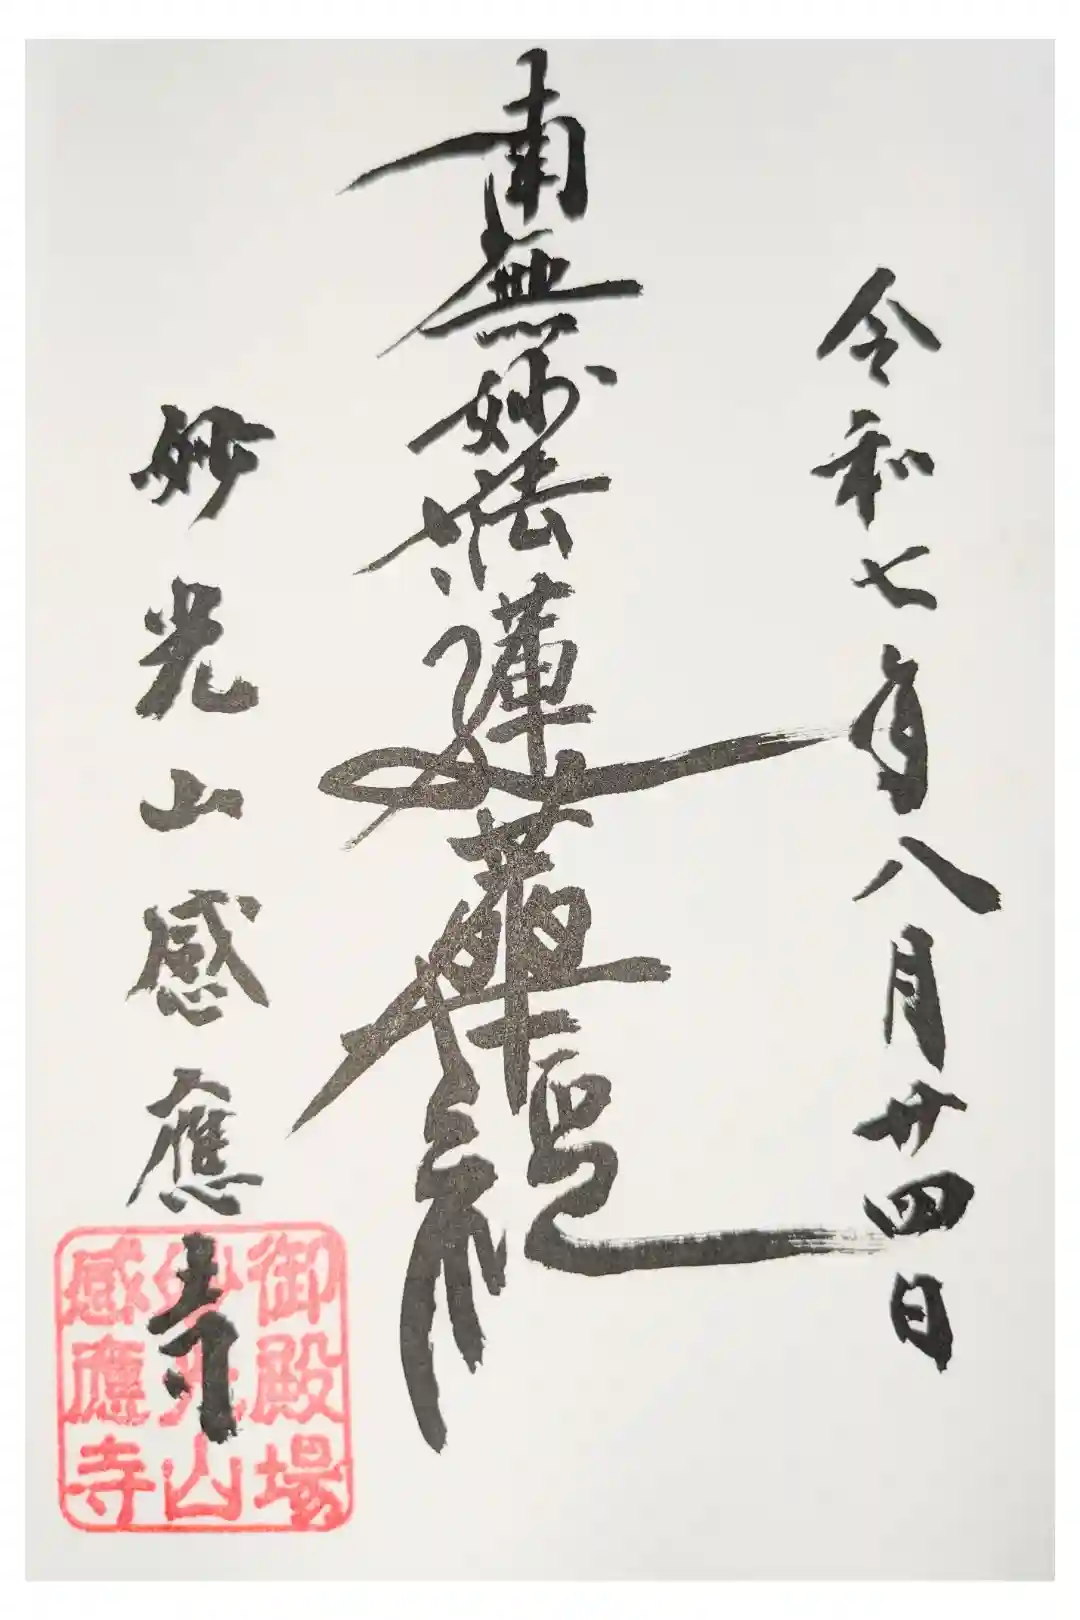 令和七年八月廿四日
南無妙法蓮華経
妙光山感應寺
御殿場
妙光山
感應寺